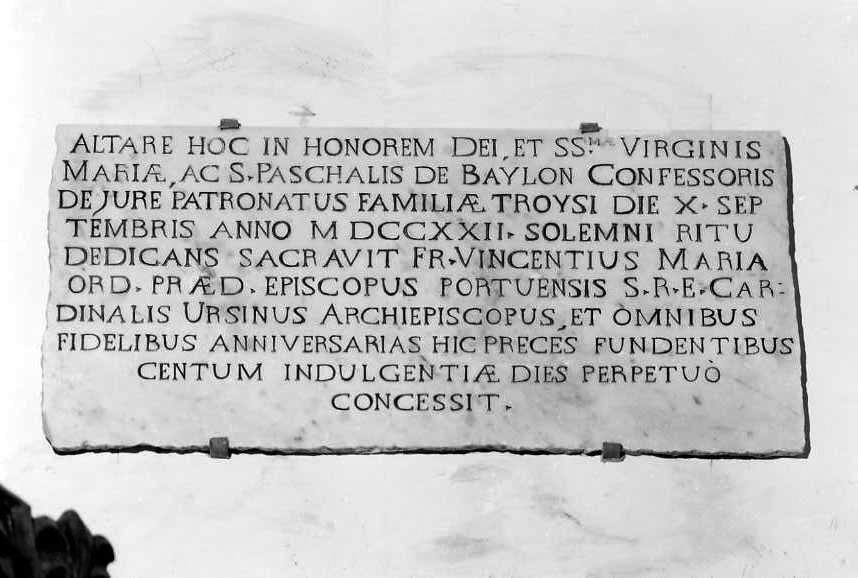 ALTARE HOC IN HONOREM DEI, ET SS.ᴹᴬᴱ VIRGINIS
MARIÆ, AC S. PASCHALIS DE BAYLON CONFESSORIS
DE JURE PATRONATUS FAMILIÆ TROYSI DIE X. SEP
TEMBRIS ANNO MDCCXXII. SOLEMNI RITU
DEDICANS SACRAVIT FR. VINCENTIUS MARIA
ORD. PRÆD. EPISCOPUS PORTUENSIS S.R.E. CAR-
DINALIS URSINUS ARCHIEPISCOPUS, ET OMNIBUS
FIDELIBUS ANNIVERSARIAS HIC PRECES FUNDENTIBUS
CENTUM INDULGENTIÆ DIES PERPETUÒ
CONCESSIT.